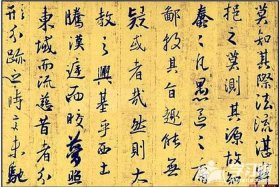 莫知其際法流湛
挹之莫測其源故知
蠢蠢凡愚區區庸
鄙投其旨趣能無
疑或者哉然則大
教之興基乎西土
騰漢庭而皎夢照
東域而流慈昔者分
形分跡之時言未馳